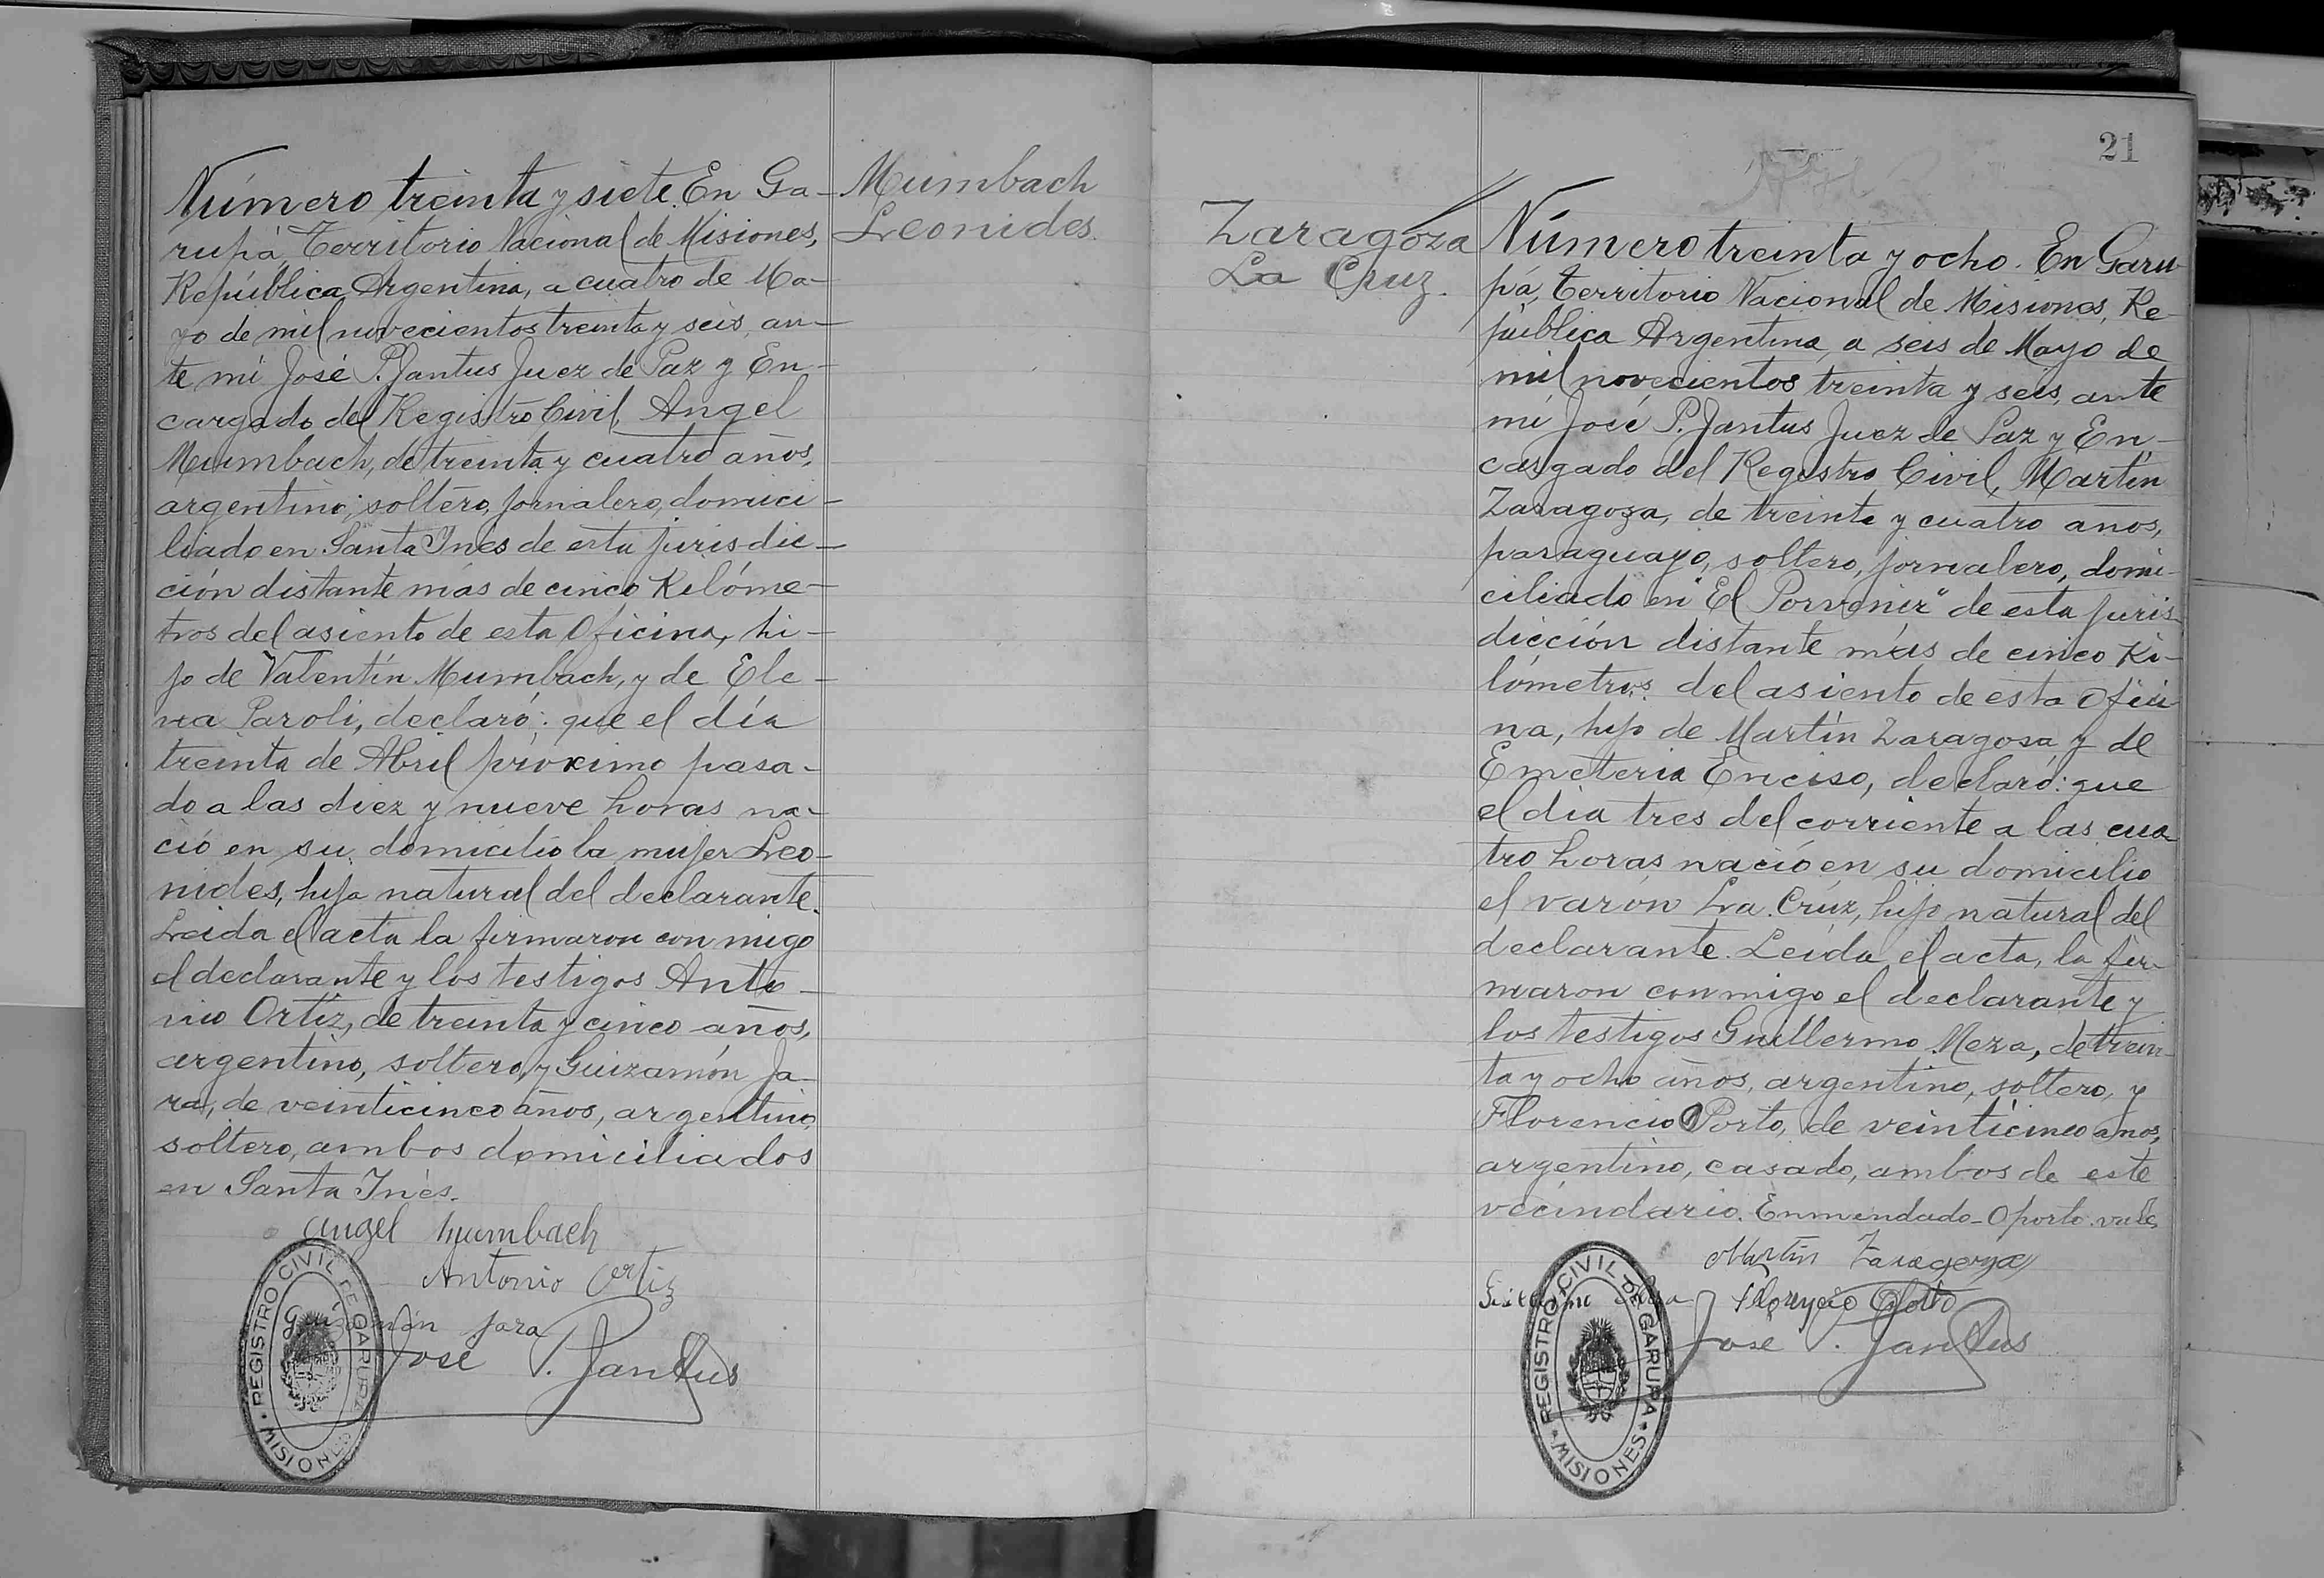 Número treinta y siete. En Ga-
rupá, Territorio Nacional de Misiones,
República Argentina, a cuatro de Ma-
yo de mil novecientos treinta y seis, an-
te mí José P. Jantus Juez de Paz y En-
cargado del Registro Civil, Angel
Mumbach, de treinta y cuatro años,
argentino, soltero, jornalero, domici-
liado en Santa Inés de esta jurisdic-
ción distante más de cinco Kilóme-
tros del asiento de esta Oficina, hi-
jo de Valentín Mumbach, y de Ele-
na Paroli, declaró: que el día
treinta de Abril próximo pasa-
do a las diez y nueve horas na-
ció en su domicilio la mujer Leo-
nides, hija natural del declarante.
Leida el acta la firmaron con migo
el declarante y los testigos Anto-
nio Ortíz, de treinta y cinco años,
argentino, soltero, y Guizamón Ja-
ra, de veinticinco años, argentino,
soltero, ambos domiciliados
en Santa Inés.
Angel Mumbach
Antonio Ortiz
Guizamón Jara
José P. Jantus
REGISTRO CIVIL DE GARUPA
MISIONES
Mumbach
Leonides.
21
Zaragoza
La Cruz.
Número treinta y ocho. En Garu-
pá, Territorio Nacional de Misiones, Re-
pública Argentina, a seis de Mayo de
mil novecientos treinta y seis, ante
mí José P. Jantus Juez de Paz y En-
cargado del Registro Civil, Martín
Zaragoza, de treinta y cuatro años,
paraguayo, soltero, jornalero, domi-
ciliado en "El Porvenir" de esta juris-
dicción distante más de cinco Ki-
lómetros del asiento de esta Ofici
na, hijo de Martín Zaragosa y de
Emeteria Enciso, declaró: que
el día tres del corriente a las cua
tro horas nació en su domicilio
el varón La Cruz, hijo natural del
declarante. Leída el acta, la fir-
maron conmigo el declarante y
los testigos Guillermo Meza, de trein-
ta y ocho años, argentino, soltero, y
Florencio Oporto, de veinticinco años,
argentino, casado, ambos de este
vecindario. Enmendado - Oporto. vale.
Martín Zaragoza
Florencio Oporto
José P. Jantus
REGISTRO CIVIL DE GARUPA
MISIONES